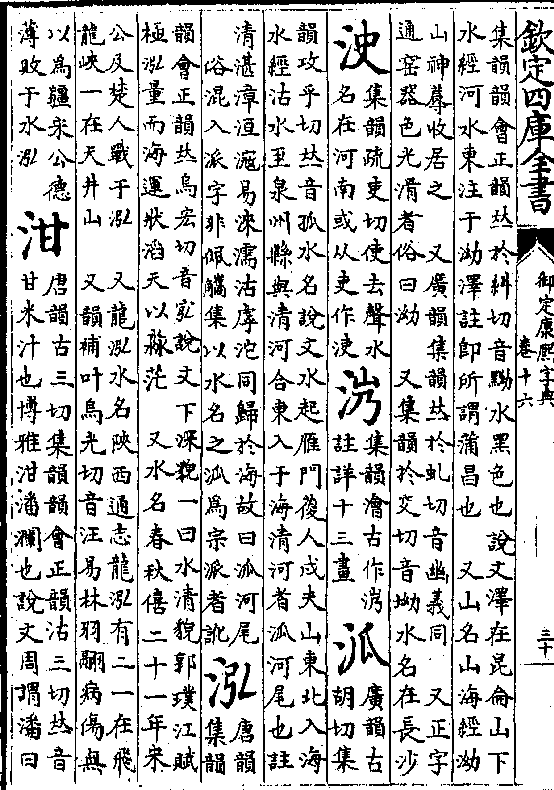 欽定四庫全書
御定康熙字典
卷十六
三十一
集韻韻會正韻𠀤於糾切音黝水黑色也說文澤在昆侖山下
水經河水東注于泑澤註即所謂蒲昌也　又山名山海經泑
山神蓐收居之　又廣韻集韻𠀤於虬切音幽義同　又正字
通窑器色光滑者俗曰泑　又集韻於交切音坳水名在長沙
㳏
集韻疏吏切使去聲水
名在河南或从吏作
集韻澮古作
註詳十三畫
泒
廣韻古
胡切集
韻攻乎切𠀤音孤水名說文水起雁門葰人戍夫山東北入海
水經沽水至泉州縣與清河合東入于海清河者泒河尾也註
清湛漳洹滱易淶濡沽虖沱同歸於海故曰泒河尾
俗混入派字非佩觿集以水名之泒爲宗派者訛
泓
唐韻
集韻
韻會正韻𠀤烏宏切音說文下深貌一曰水清貌郭璞江賦
極泓量而海運狀滔天以淼茫　又水名春秋僖二十一年宋
公及楚人戰于泓　又龍泓水名陝西通志龍泓有二一在飛
龍峽一在天井山　又韻補叶烏光切音汪易林羽翮病傷無
以爲疆宋公德
薄敗于水泓
泔
唐韻古三切集韻韻會正韻沽三切𠀤音
甘米汁也博雅泔潘瀾也說文周謂潘曰